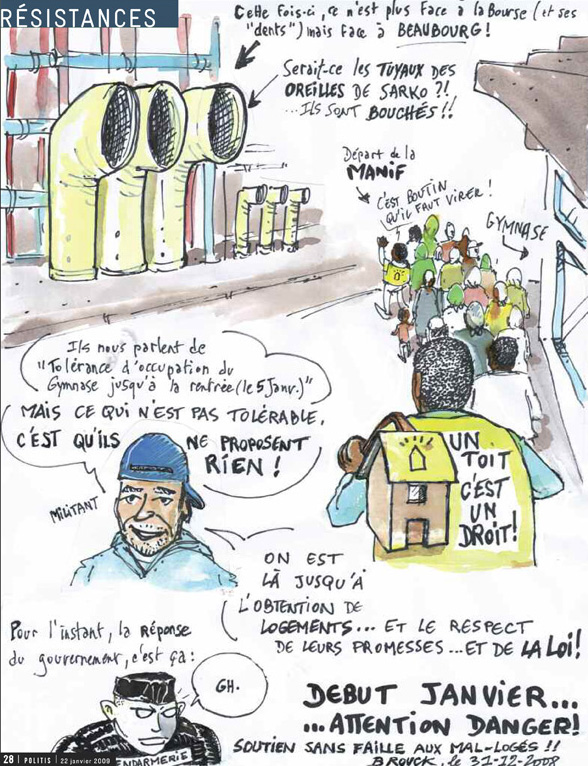 RÉSISTANCES
Cette fois-ci, ce n'est plus face à la Bourse (et ses
"dents") mais face à BEAUBOURG !
Serait-ce les TUYAUX DES
OREILLES DE SARKO ?!
...ILS SONT BOUCHÉS !!
Départ de la
MANIF
C'EST BOUTIN
QU'IL FAUT VIRER !
GYMNASE
Ils nous parlent de
"Tolérance d'occupation du
Gymnase jusqu'à la rentrée (le 5 Janv.)"
MAIS CE QUI N'EST PAS TOLÉRABLE,
C'EST QU'ILS NE PROPOSENT
RIEN !
MILITANT
UN
TOIT
C'EST
UN
DROIT!
ON EST
LÀ JUSQU'À
L'OBTENTION DE
LOGEMENTS... ET LE RESPECT
DE LEURS PROMESSES... ET DE LA LOI!
Pour l'instant, la RÉponse
du gouvernement, c'est ça :
GH.
GENDARMERIE
DEBUT JANVIER...
...ATTENTION DANGER!
SOUTIEN SANS FAILLE AUX MAL-LOGÉS !!
BROUCK, le 31-12-2008
28 | POLITIS | 22 janvier 2009